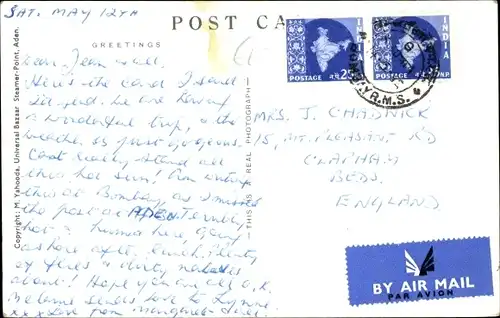 SAT. MAY 12TH
POST CA
GREETINGS
Dear Jean & all.
Here's the card I said
I'd send. We are having
a wonderful trip, & the
weather is just gorgeous.
Cant really stand all
this hot sun! Am writing
this at Bombay, as I missed
the post at ADEN. Terribly
hot & humid here, going
ashore after lunch. Plenty
of flies & dirty natives
about! Hope you are all O.K.
Melanie sends love to Lynne
xxx Love from Margaret
Copyright: M. Yahooda, Universal Bazaar Steamer-Point, Aden.
THIS IS A REAL PHOTOGRAPH
INDIA
POSTAGE
न.पै.25
INDIA
POSTAGE
N.P.
R.M.S.
MRS. J. CHADNICK
15, MT. PLEASANT RD
CLAPHAM
BEDS.
ENGLAND
BY AIR MAIL
PAR AVION